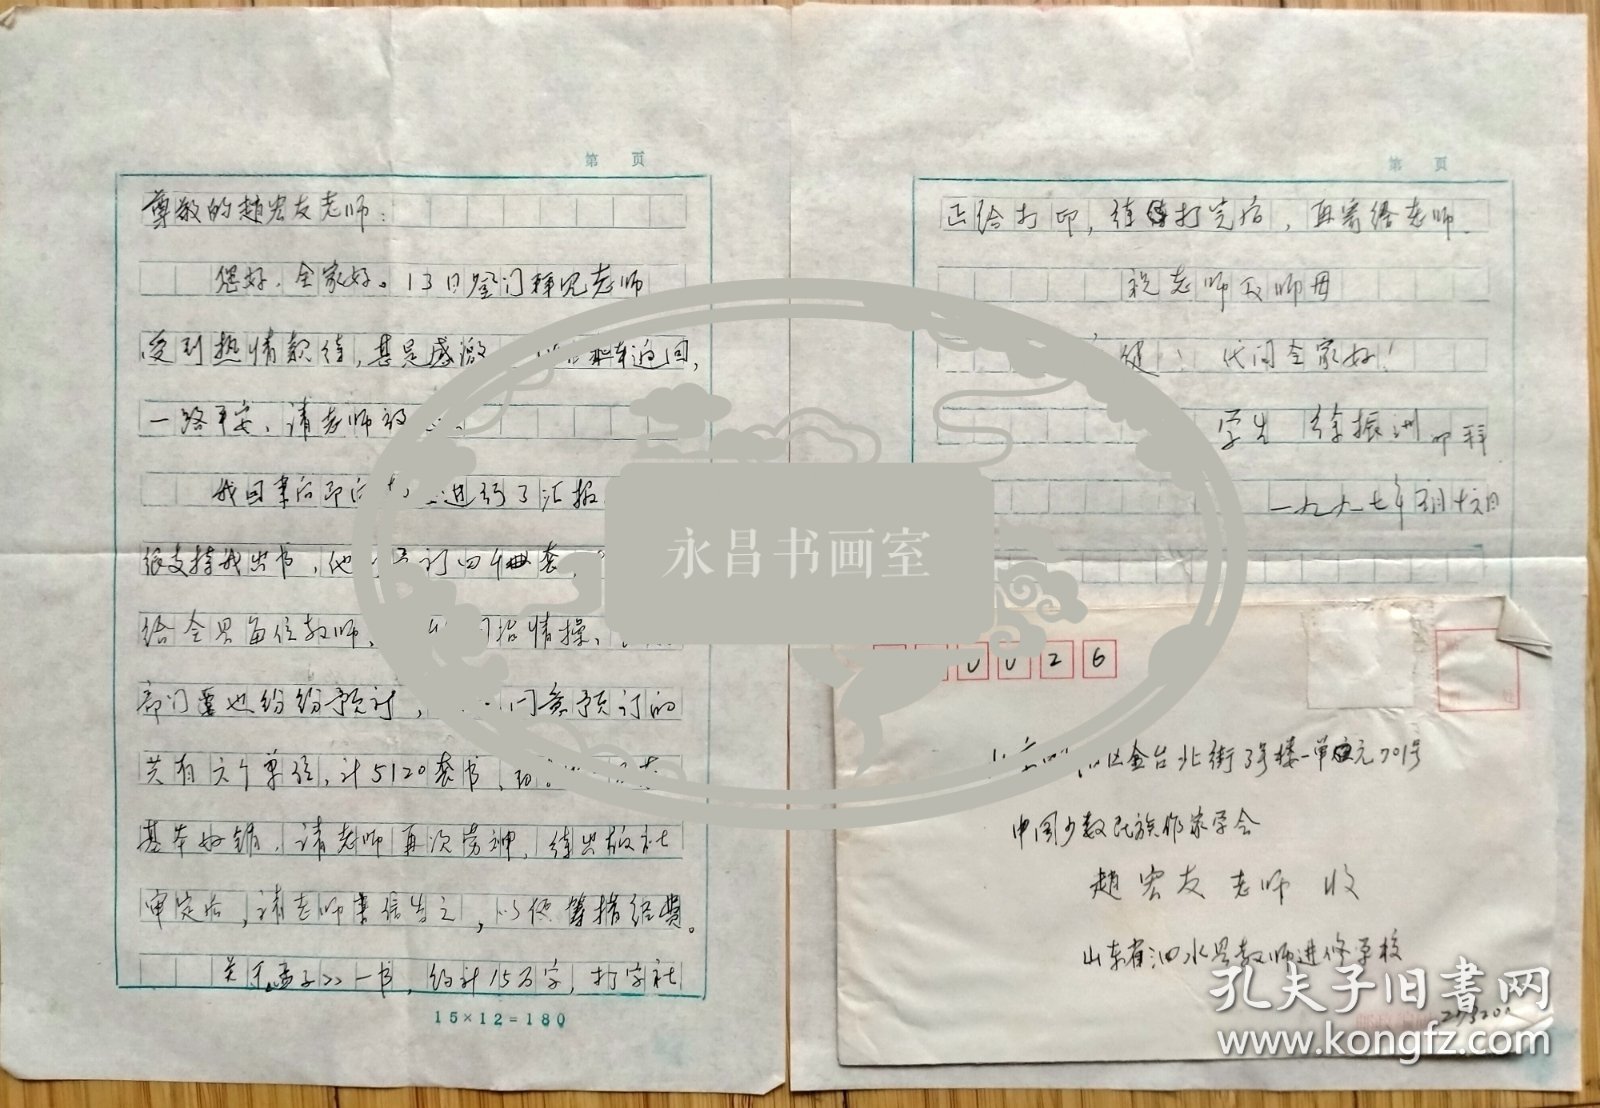 第 页
尊敬的赵宏友老师：
您好，全家好。13日登门拜见老师
受到热情款待，甚是感激 返回，
一路平安，请老师放
我回来后即向 进行了汇报
很支持我出书，他 订四千册套，
给全县每位教师， 陶冶情操，
部门也纷纷预订， 同意预订的
共有六个单位，计5120套书，
基本好销，请老师再次劳神，待出版社
审定后，请老师来信告之，以便筹措经费。
关于《孟子》一书，约计15万字，打字社
15×12=180
第 页
正给打印，待打完后，再寄给老师.
祝老师及师母
健， 代问全家好！
学生 徐振洲 叩拜
一九九七年五月十六日
永昌书画室
0 0 2 6
区金台北街3号楼一单元701号
中国少数民族作家学会
赵宏友老师 收
山东省泗水县教师进修学校
273200
孔夫子旧书网
www.kongfz.com